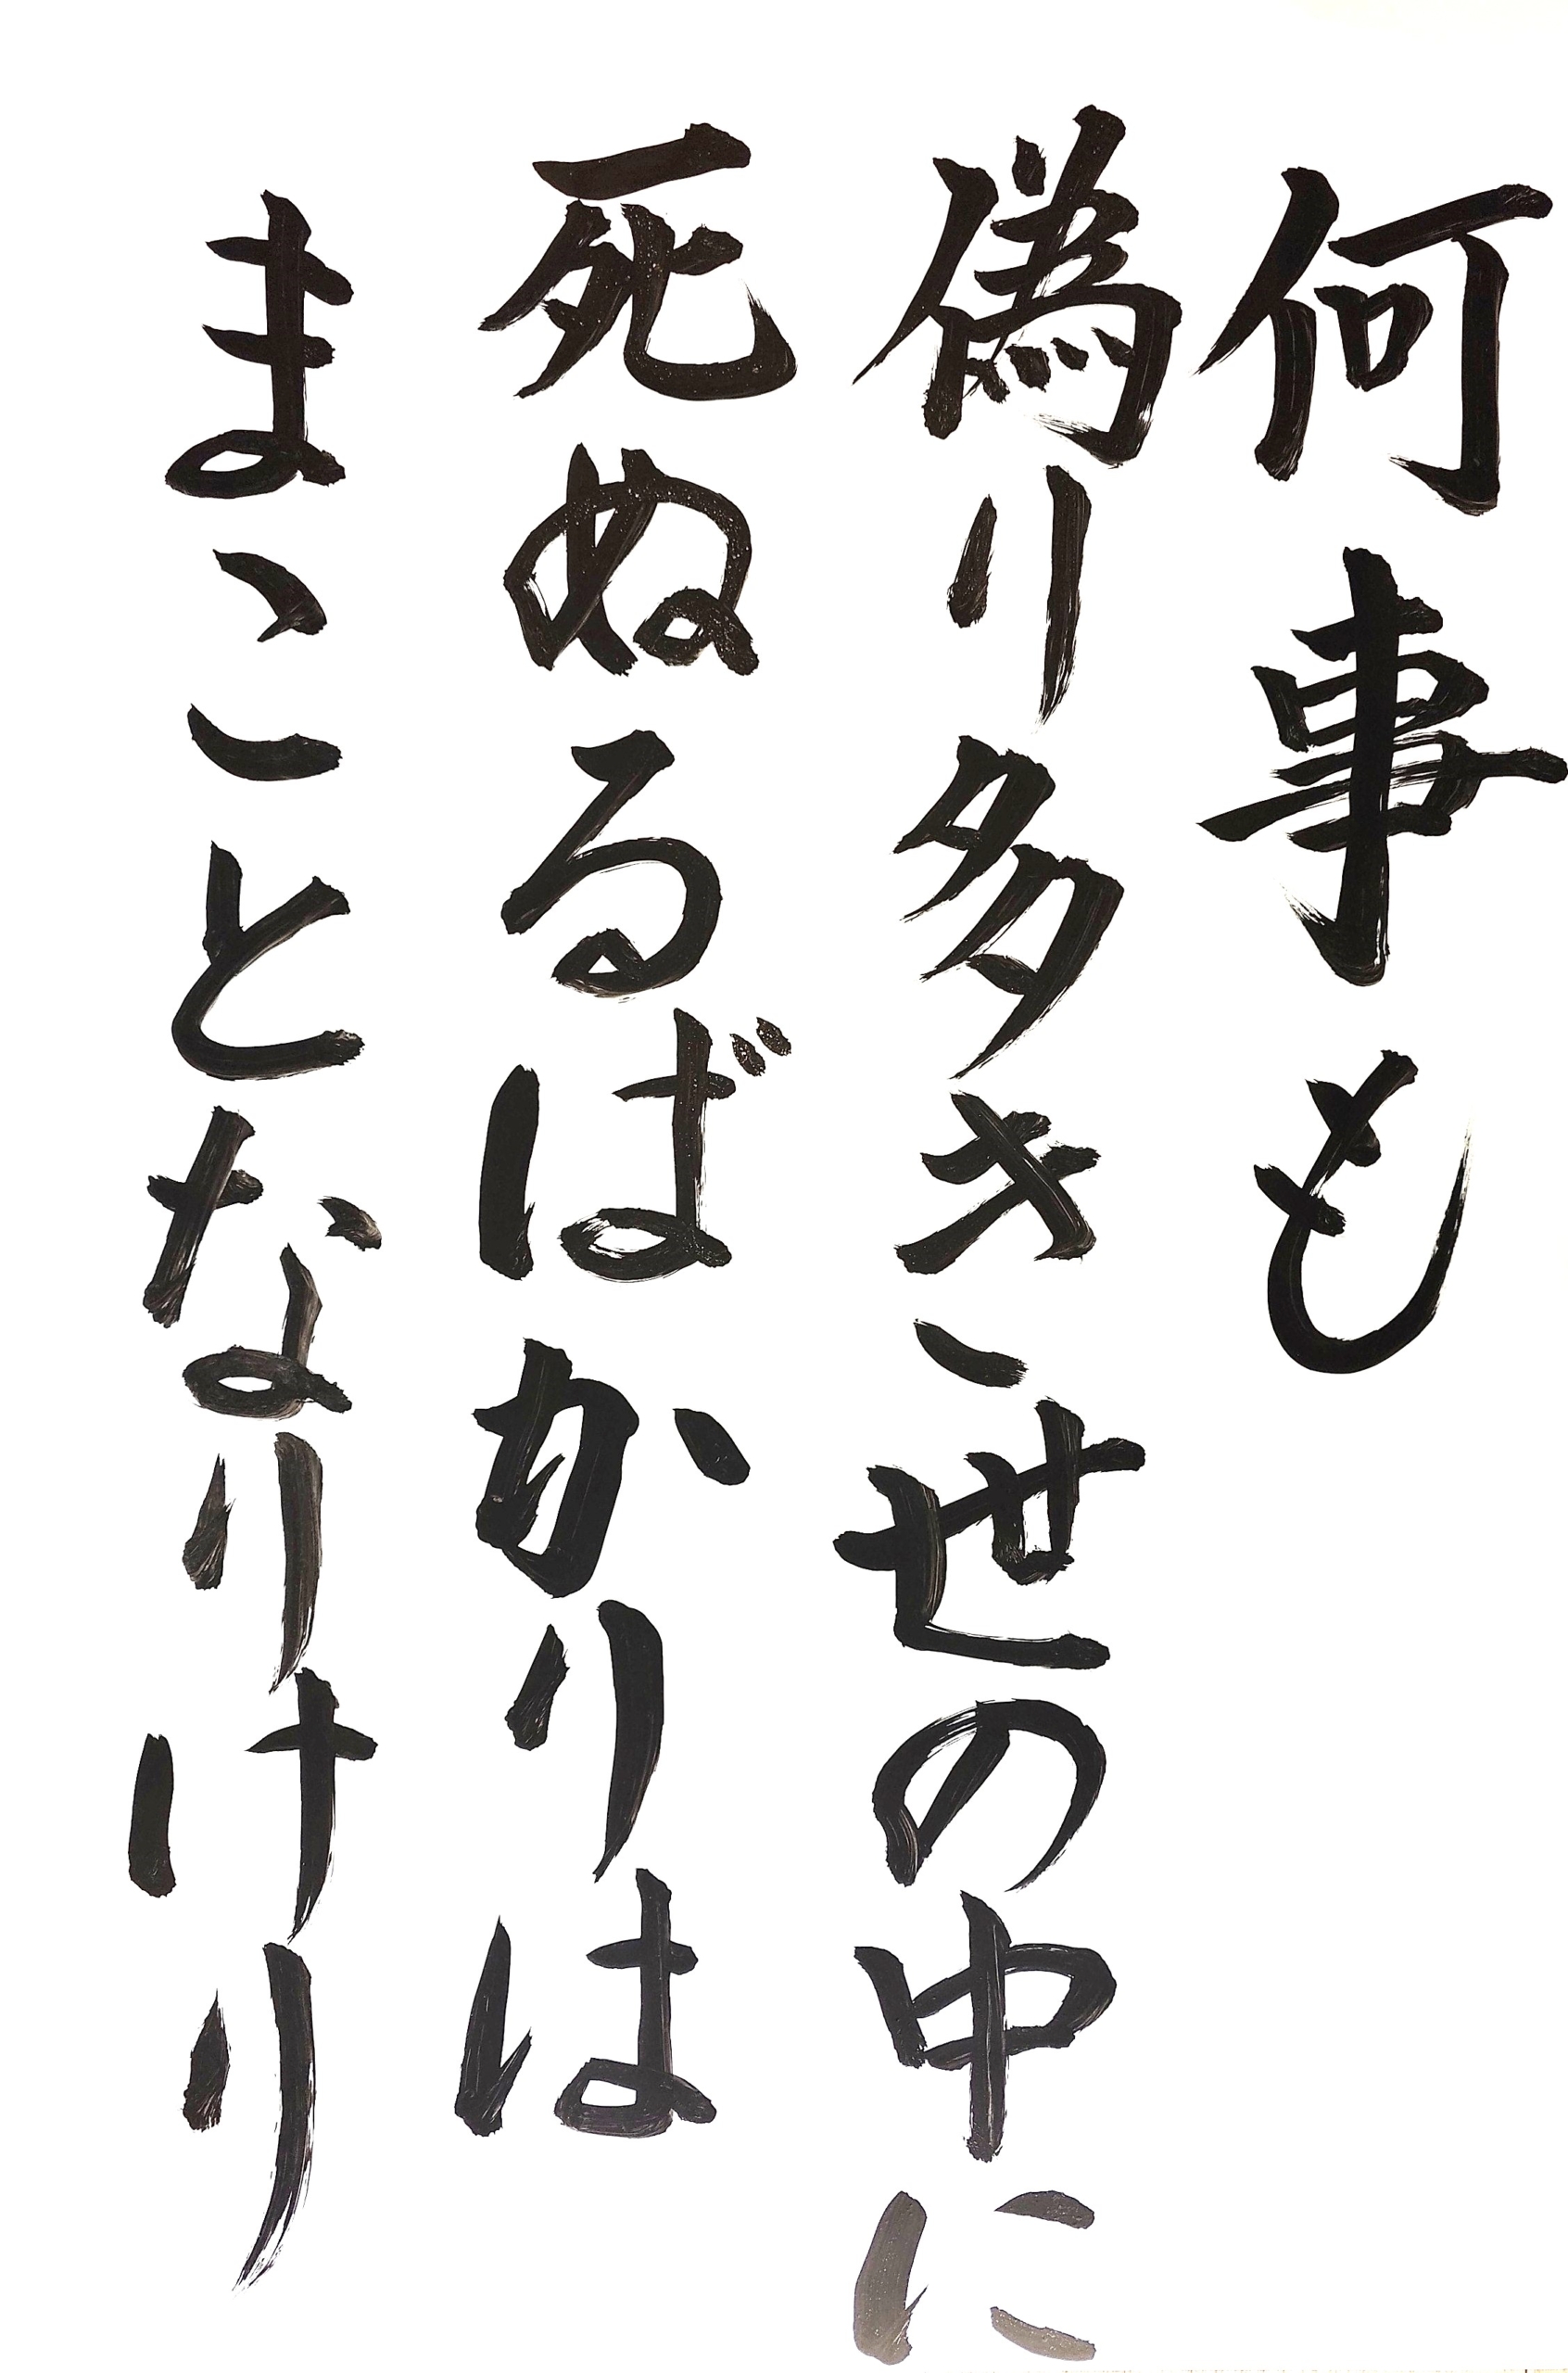 何事も
偽り多き世の中に
死ぬるばかりは
まことなりけり